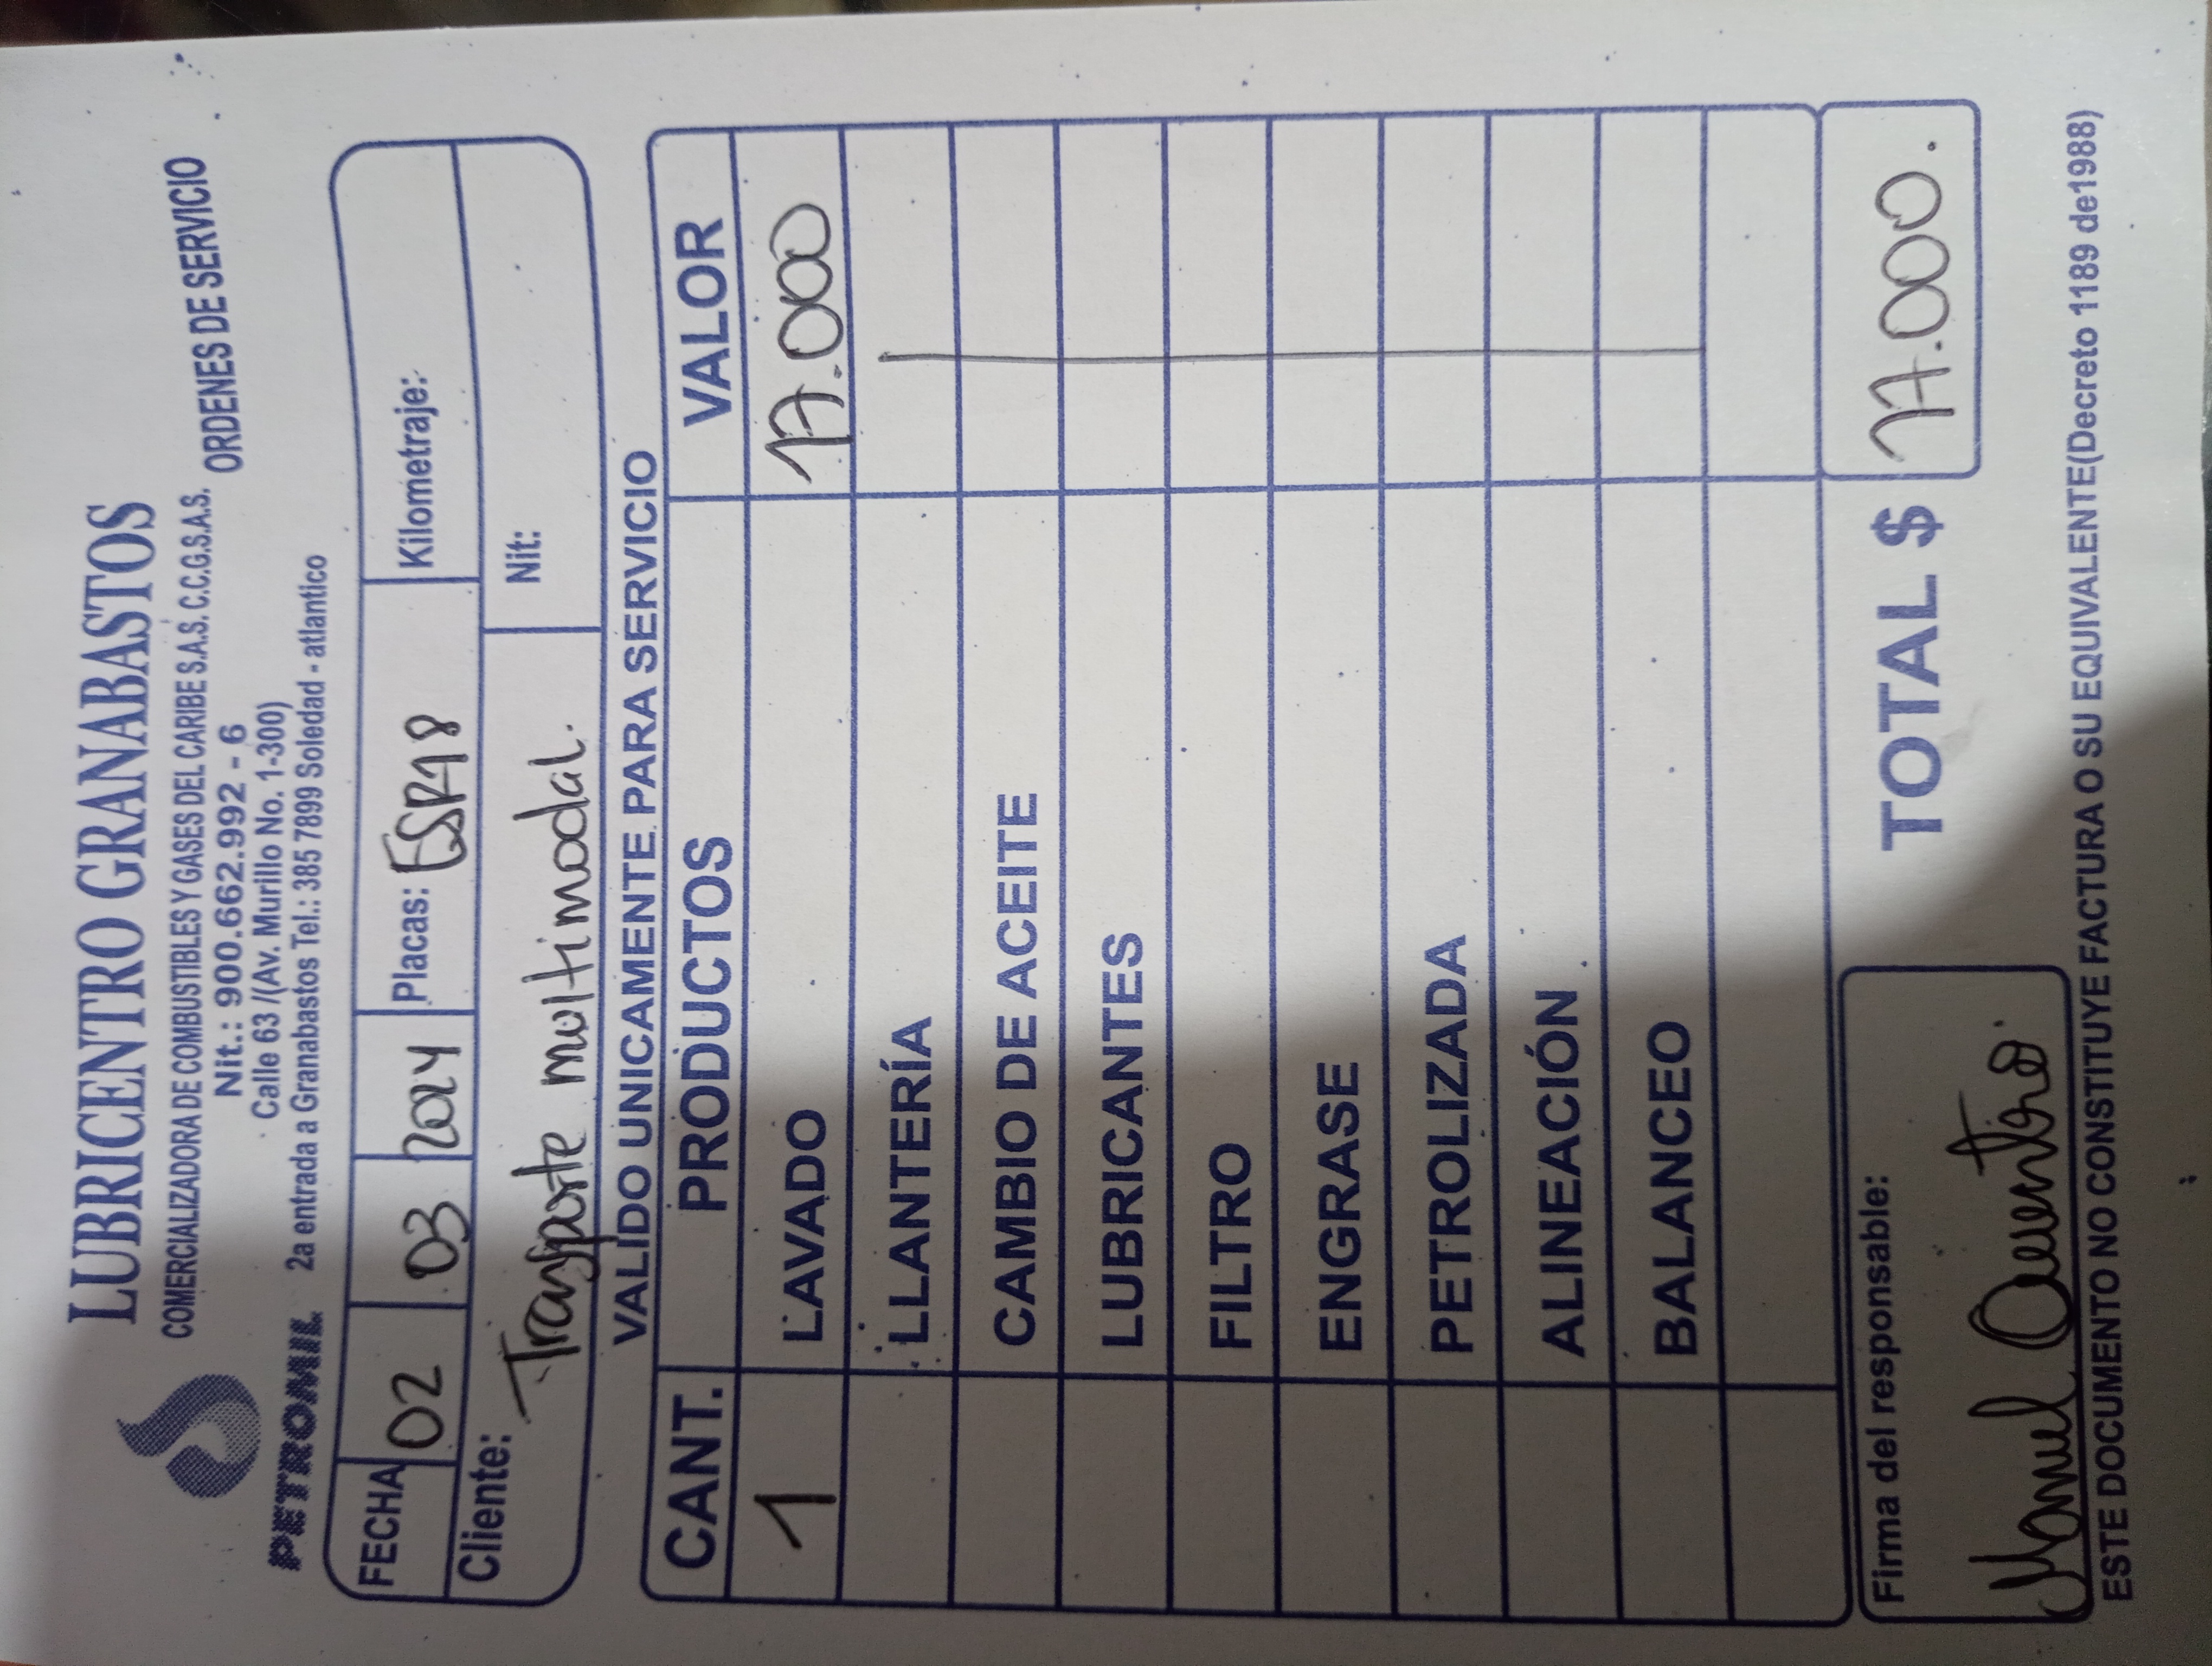 LUBRICENTRO GRANABASTOS
COMERCIALIZADORA DE COMBUSTIBLES Y GASES DEL CARIBE S.A.S. C.C.G.S.A.S.
ORDENES DE SERVICIO
Nit.: 900.662.992 - 6
Calle 63 /(Av. Murillo No. 1-300)
PETROMIL 2a entrada a Granabastos Tel.: 385 7899 Soledad - atlantico
FECHA 02 03 2024 Placas: Kilometraje:
Cliente: Transporte multimodal. Nit:
VALIDO UNICAMENTE PARA SERVICIO
CANT. PRODUCTOS VALOR
1 LAVADO 17.000
LLANTERÍA
CAMBIO DE ACEITE
LUBRICANTES
FILTRO
ENGRASE
PETROLIZADA
ALINEACIÓN
BALANCEO
Firma del responsable: TOTAL $ 17.000.
Manuel
ESTE DOCUMENTO NO CONSTITUYE FACTURA O SU EQUIVALENTE(Decreto 1189 de1988)